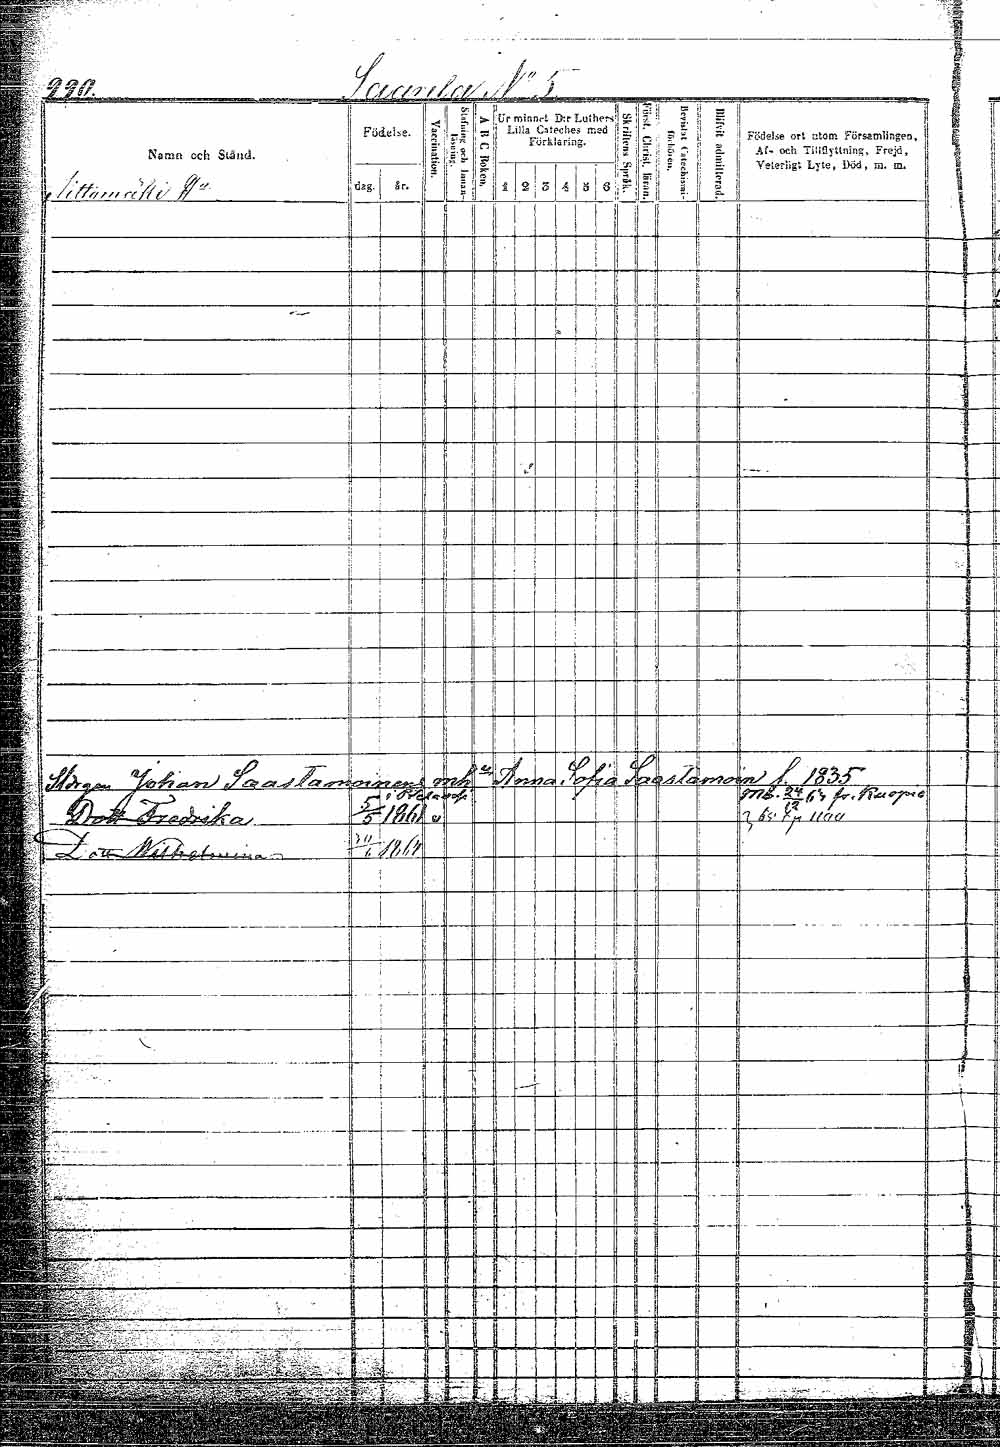 220.
Saamla N:o 5
Namn och Stånd.
Födelse.
dag. år.
Vaccination.
Stafning och Innanläsning.
A B C Boken.
Ur minnet D:r Luthers Lilla Cateches med Förklaring.
1 2 3 4 5 6
Skriftens Språk.
Först. Christ. läran.
Bevistat Catechismiförhören.
Blifvit admitterad.
Födelse ort utom Församlingen,
Af- och Tillflyttning, Frejd,
Veterligt Lyte, Död, m. m.
Johan Saastamoinens Anna Sofia Saastamoin f. 1835
24/12 64 fr. Kuopio
Dott Fredrika 5/5 1861 v
Dott Wilhelmina 1864